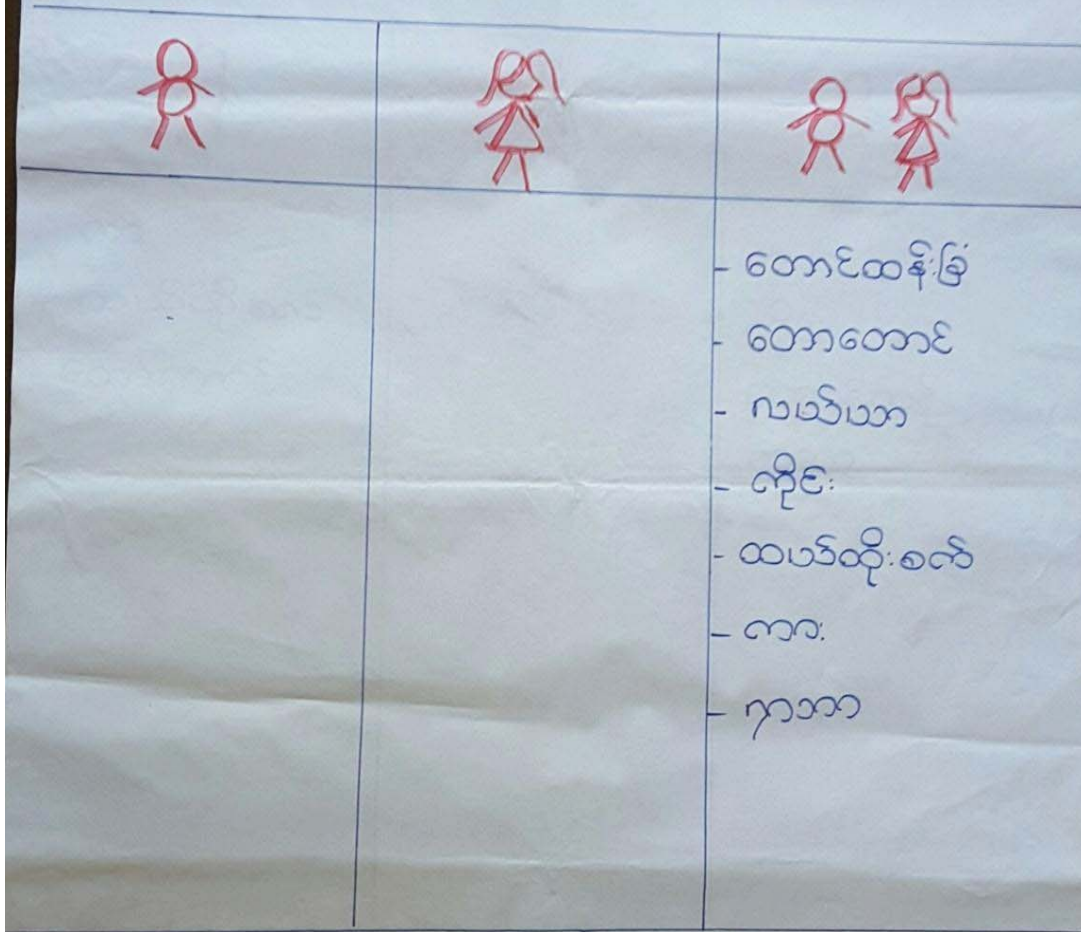 - တောင်ထန်းခြံ
- တောတောင်
- လယ်ယာ
- ကိုင်း
- ထယ်ထိုးစက်
- ကား
- ရာဘာ